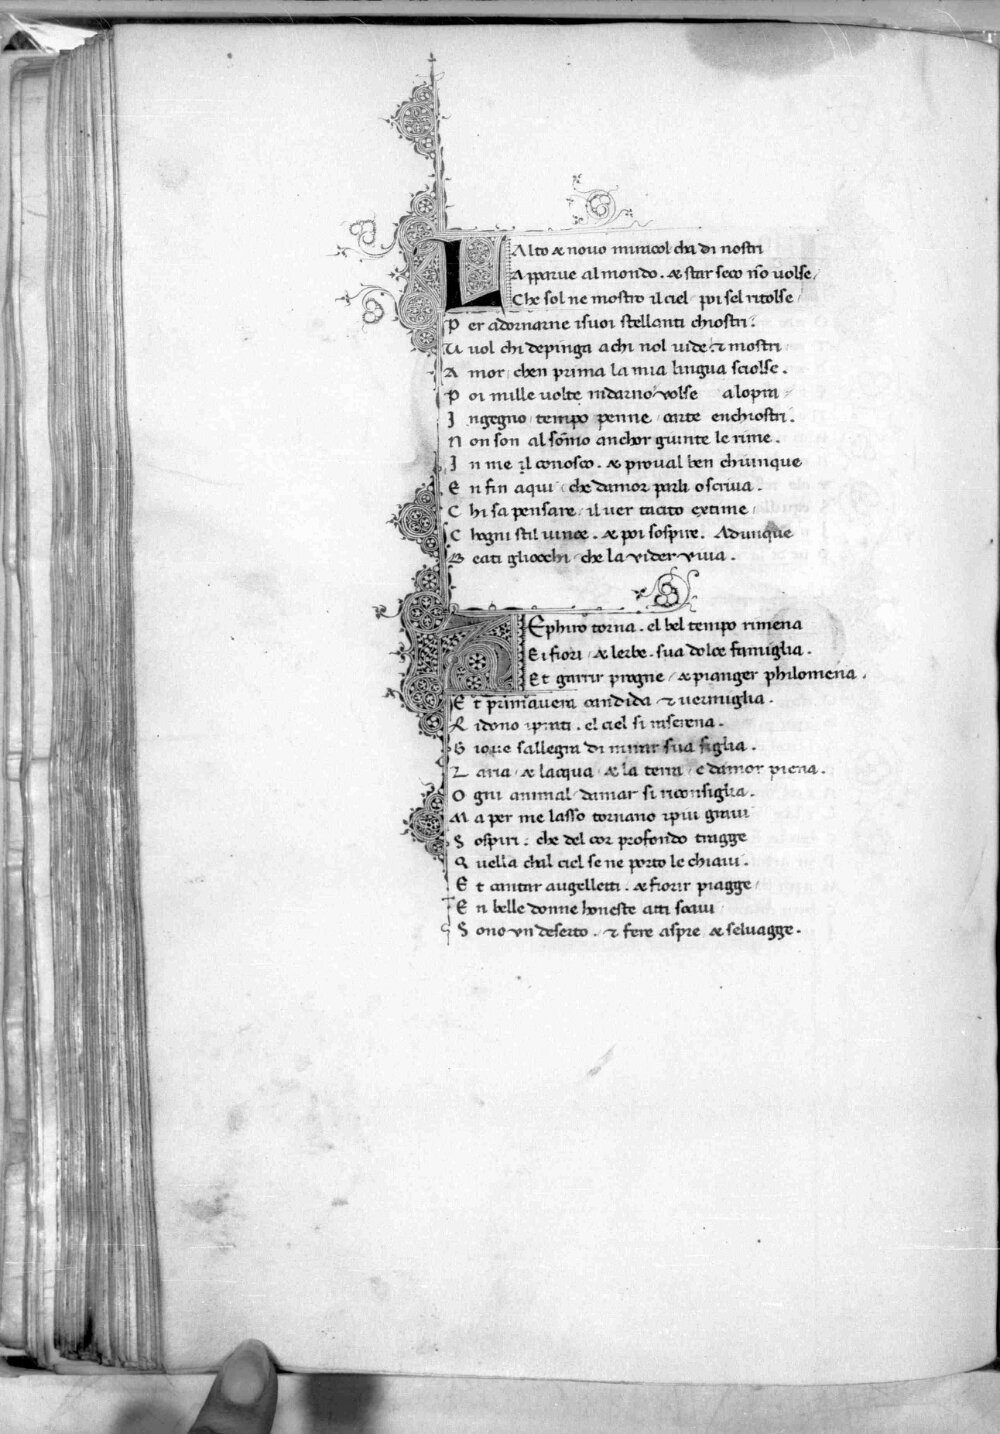 L Alto & novo miracol cha di nostri
Apparue al mondo. & star seco nõ uolse/
Che sol ne mostro il ciel/ poi sel ritolse/
P er adornarne isuoi stellanti chiostri:
U uol chi depinga achi nol uide & mostri
A mor/ chen prima la mia lingua sciolse.
P oi mille uolte indarno volse alopra
I ngegno/ tempo penne/ carte enchiostri.
N on son al sõmo anchor giunte le rime.
I n me il conosco. & proual ben chiunque
E nfin aqui/ che damor parli o scriua.
C hi sa pensare/ il uer tacito extime/
C hogni stil uince. & poi sospire. Adunque
B eati gliocchi/ che la vider viua.
Z Ephiro torna. el bel tempo rimena
E i fiori/ & lerbe. sua dolce famiglia.
Et garrir progne/ & pianger philomena.
E t primauera candida & uermiglia.
R idono iprati. el ciel si inserena.
G ioue sallegra di mirar sua figlia.
L aria/ & lacqua/ & la terra/ e damor piena.
O gni animal/ damar si riconsiglia.
M a per me lasso tornano ipiu graui
S ospiri: che del cor profondo tragge
Q uella chal ciel se ne porto le chiaui.
E t cantar augelletti. & fiorir piagge/
E n belle donne honeste atti soaui
S ono vn deserto. & fere aspre & seluagge.